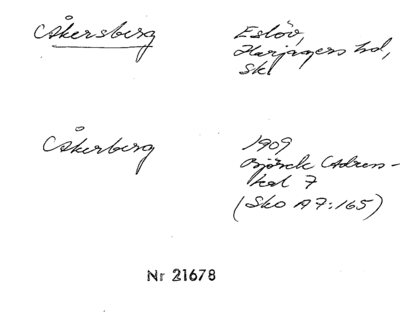 Åkersberg
Eslöv,
Harjagers hd,
Sk.
Åkerberg
1909
Björck (Adress-
kal 7
(Sko A7:165)
Nr 21678